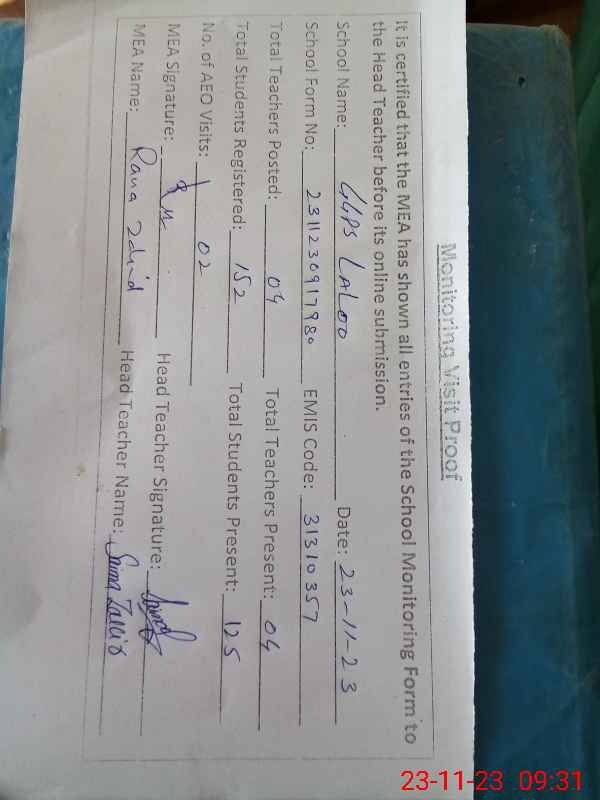 Monitoring Visit Proof
It is certified that the MEA has shown all entries of the School Monitoring Form to
the Head Teacher before its online submission.
School Name: GGPS LALOO Date: 23-11-23
School Form No: 231123091798० EMIS Code: 31310357
Total Teachers Posted: 04 Total Teachers Present: 04
Total Students Registered: 152 Total Students Present: 125
No. of AEO Visits: 02
MEA Signature: Head Teacher Signature:
MEA Name: Rana Head Teacher Name: Saima
23-11-23 09:31